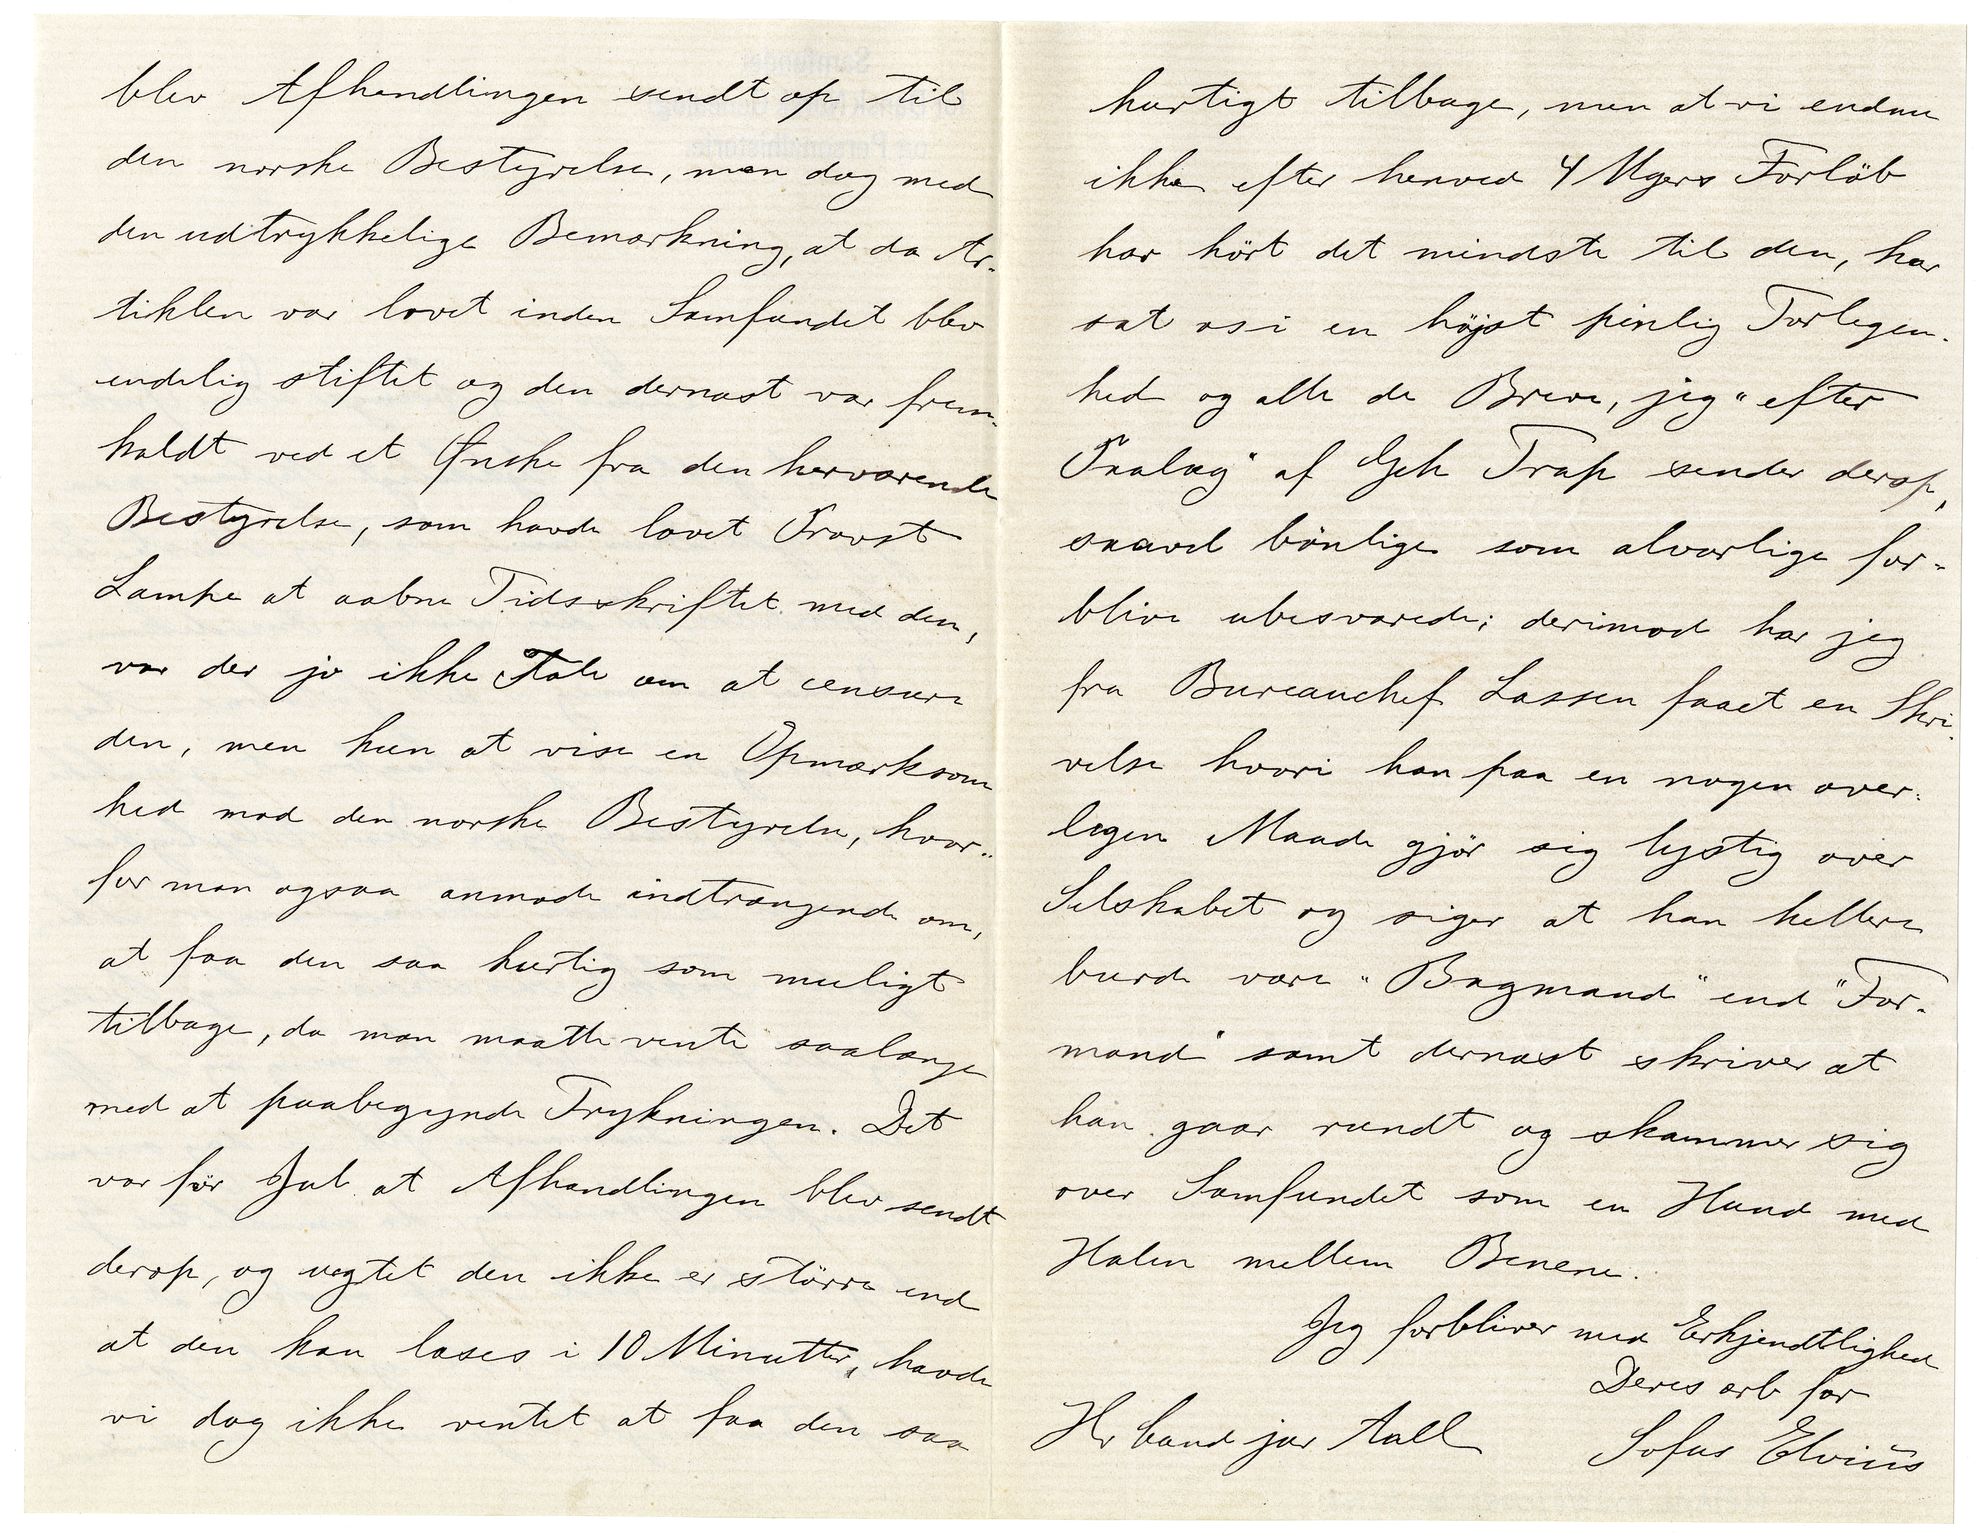 blev Afhandlingen sendt op til
den norske Bestyrelse, men dog med
den udtrykkelige Bemærkning, at da Ar-
tiklen var lovet inden Samfundet blev
endelig stiftet og den dernæst var frem-
kaldt ved et Ønske fra den herværende
Bestyrelse, som havde lovet Provst
Lampe at aabne Tidsskriftet med den,
var der jo ikke Tale om at censure
den, men kun at vise en Opmærksom
hed mod den norske Bestyrelse, hvor-
for man ogsaa anmode indtrængende om,
at faa den saa hurtig som muligt
tilbage, da man maatte vente saalænge
med at paabegynde Trykningen. Det
var før Jul at Afhandlingen blev sendt
derop, og uagtet den ikke er større end
at den kan læses i 10 Minutter, havde
vi dog ikke ventet at faa den saa
hurtigt tilbage, men at vi endnu
ikke efter henved 4 Ugers Forløb
har hört det mindste til den, har
sat os i en höjst pinlig Forlegen-
hed og alle de Breve, jeg "efter
Paalæg" af Geh Trap sender derop,
saavel bönlige som alvorlige for-
blive ubesvarede; derimod har jeg
fra Bureauchef Lassen faaet en Skri-
velse hvori han paa en nogen over-
legen Maade gjör sig lystig over
Selskabet og siger at han hellere
burde være "Bagmand" end "For-
mand" samt dernæst skriver at
han gaar rundt og skammer sig
over Samfundet som en Hund med
Halen mellem Benene.
Jeg forbliver med Erkjendtlighed
Deres ærb for
Sofus Elvius
Hr cand jur Aall